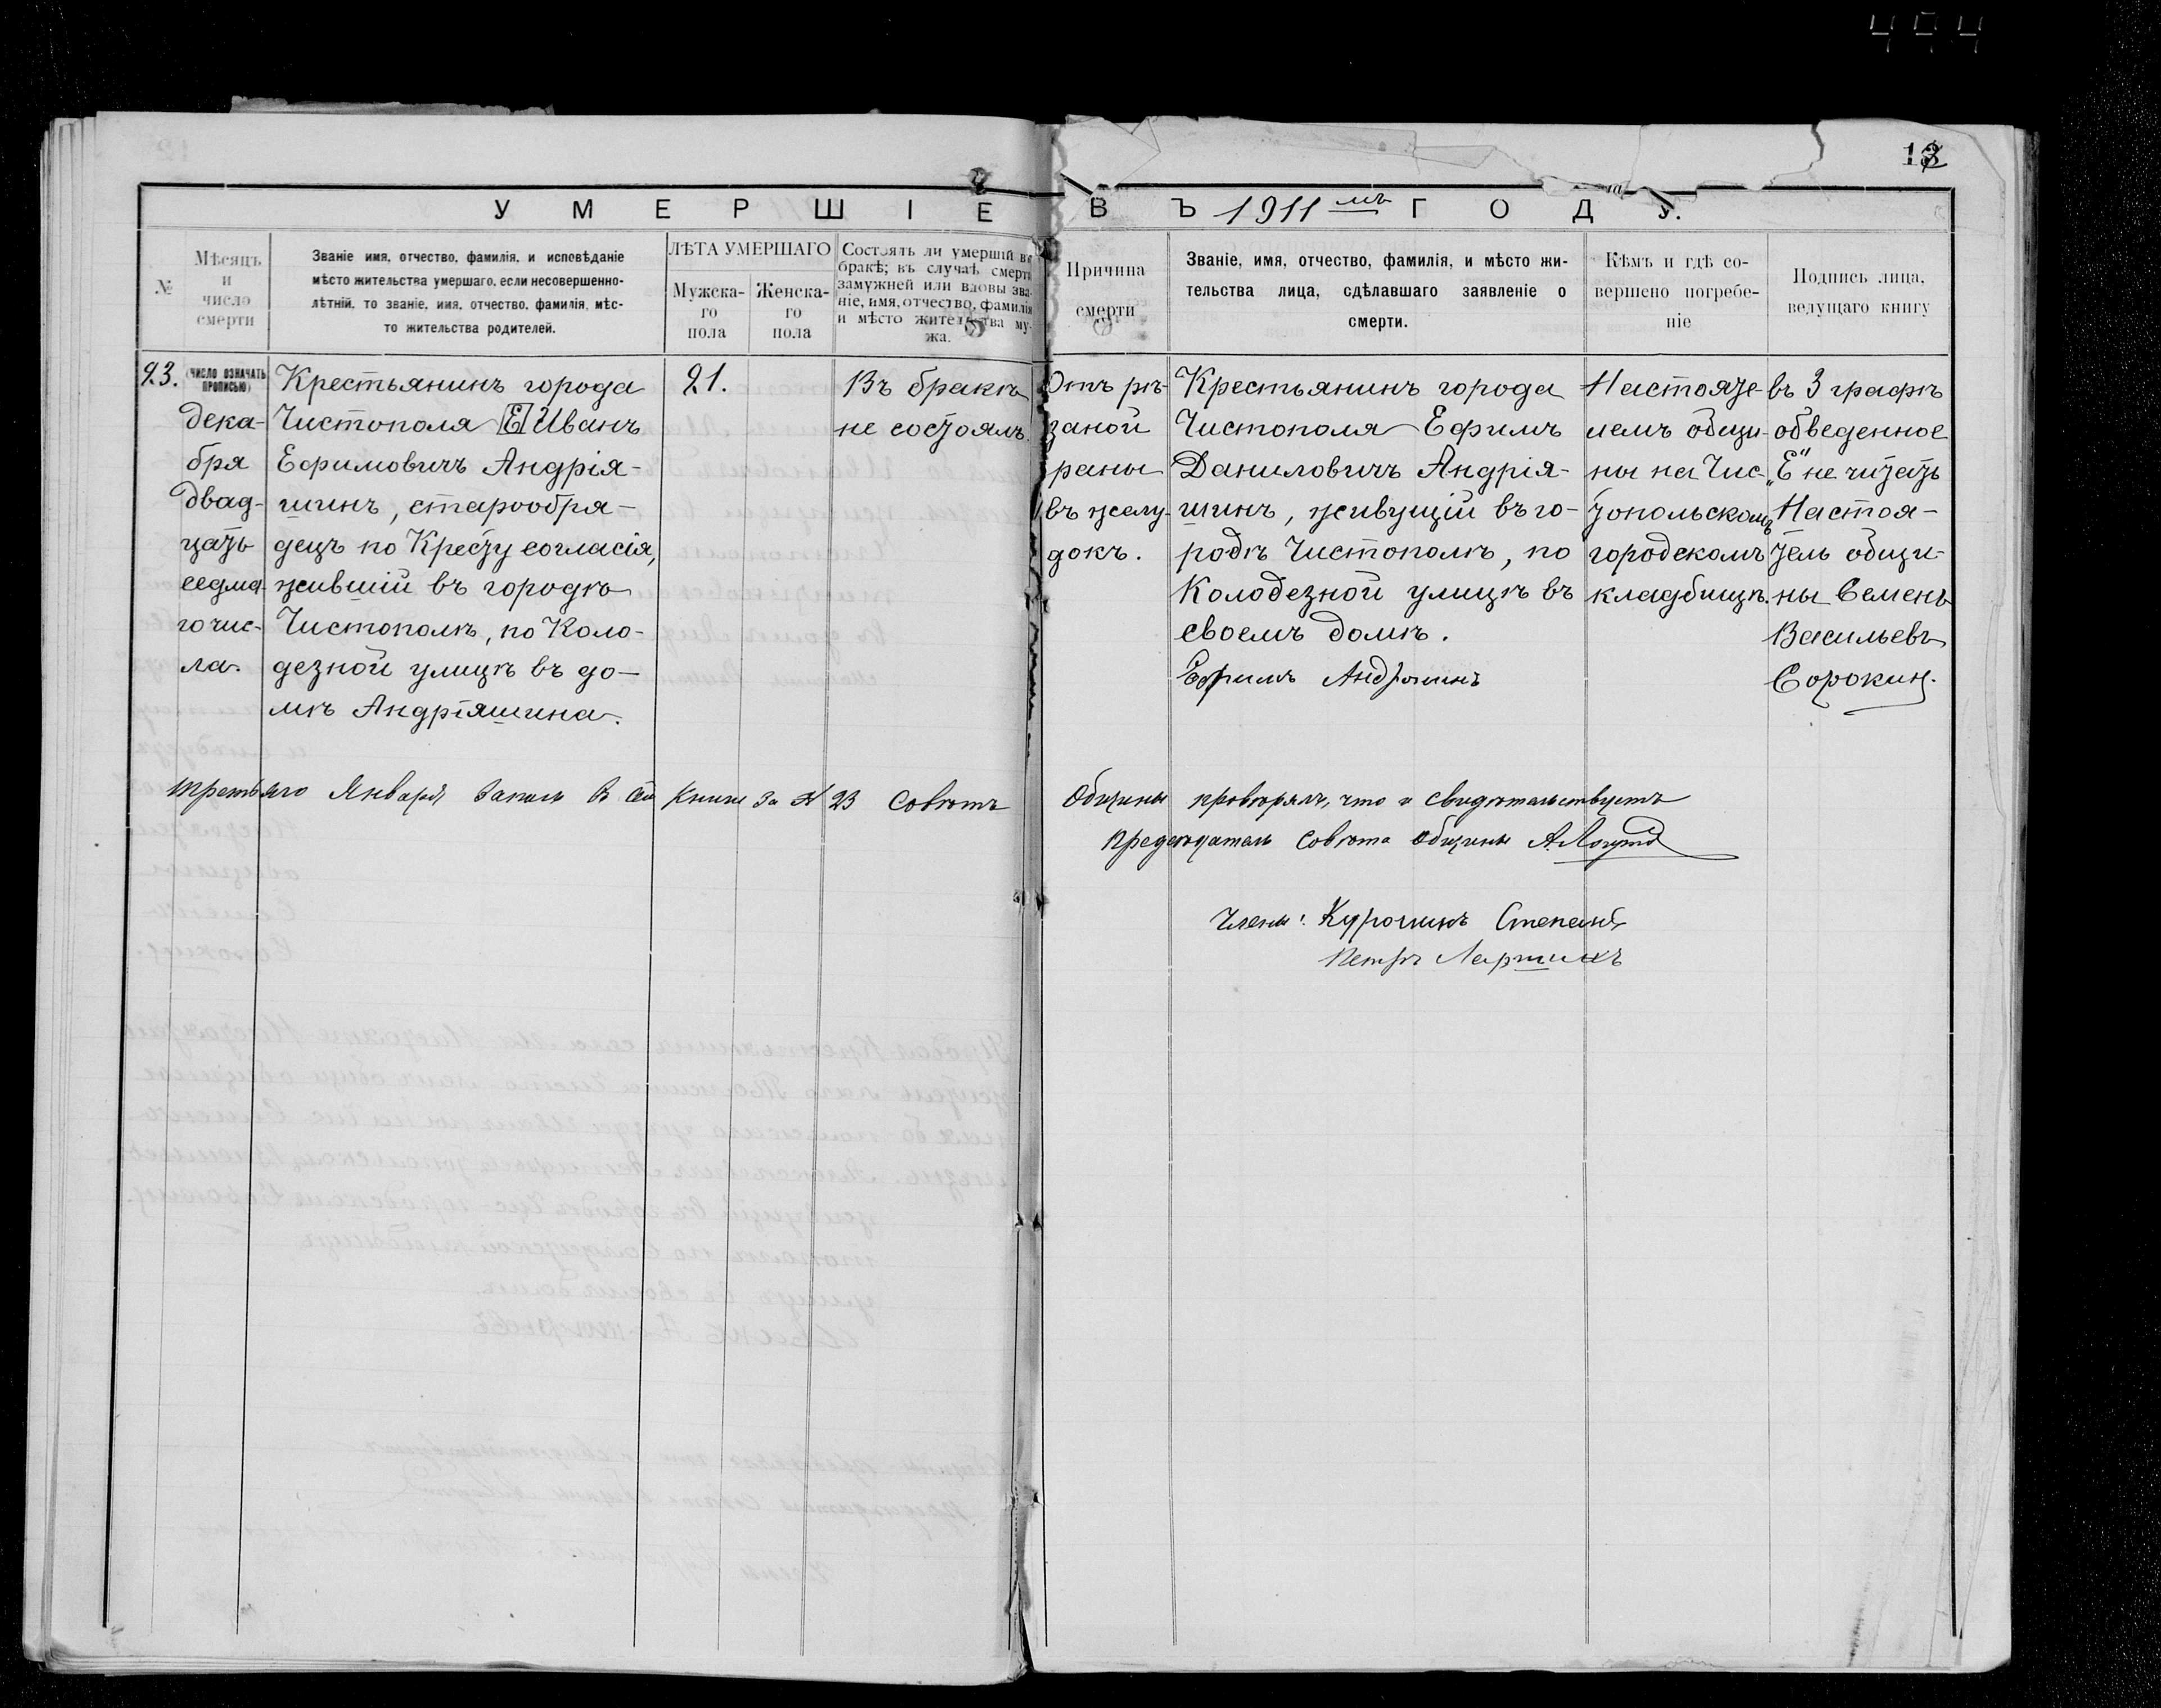 494
УМЕРШІЕ ВЪ 1911 мъ ГОДУ.
№
Мѣсяцъ
и
число
смерти
Званіе имя, отчество, фамилія, и исповѣданіе
мѣсто жительства умершаго, если несовершенно-
лѣтній, то званіе, имя, отчество, фамилія, мѣс-
то жительства родителей.
ЛѢТА УМЕРШАГО
Мужска-
го
пола
Женска-
го
пола
Состоялъ ли умершій въ
бракѣ; въ случаѣ смерти
замужней или вдовы зва-
ніе, имя, отчество, фамилія
и мѣсто жительства му-
жа.
Причина
смерти
Званіе, имя, отчество, фамилія, и мѣсто жи-
тельства лица, сдѣлавшаго заявленіе о
смерти.
Кѣмъ и гдѣ со-
вершено погребе-
ніе
Подпись лица,
ведущаго книгу
23.
(ЧИСЛО ОЗНАЧАТЬ
ПРОПИСЬЮ)
дека-
бря
двад-
цать
седма-
го чис-
ла.
Крестьянинъ города
Чистополя Е Иванъ
Ефимовичъ Андрія-
шинъ, старообря-
децъ по Кресту согласія,
жившій въ городѣ
Чистополѣ, по Коло-
дезной улицѣ въ до-
мѣ Андріяшина.
21.
Въ бракѣ
не состоялъ.
Отъ рѣ-
заной
раны
въ желу-
докъ.
Крестьянинъ города
Чистополя Ефимъ
Даниловичъ Андрія-
шинъ, живущій въ го-
родѣ Чистополѣ, по
Колодезной улицѣ въ
своемъ домѣ.
Ефимъ Андряшинъ
Настояте-
лемъ общи-
ны на Чис-
топольскомъ
городскомъ
кладбищѣ.
въ 3 графѣ
обведенное
„Е" не читать
Настоя-
тель общи-
ны Семенъ
Васильевъ
Сорокин.
третьяго Января запись в сей книги за N 23 Совѣтъ Общины провѣрялъ, что и свидѣтельствуетъ
Предсѣдатель Совѣта Общины
Члены: Курочкинъ Степанъ
Петръ